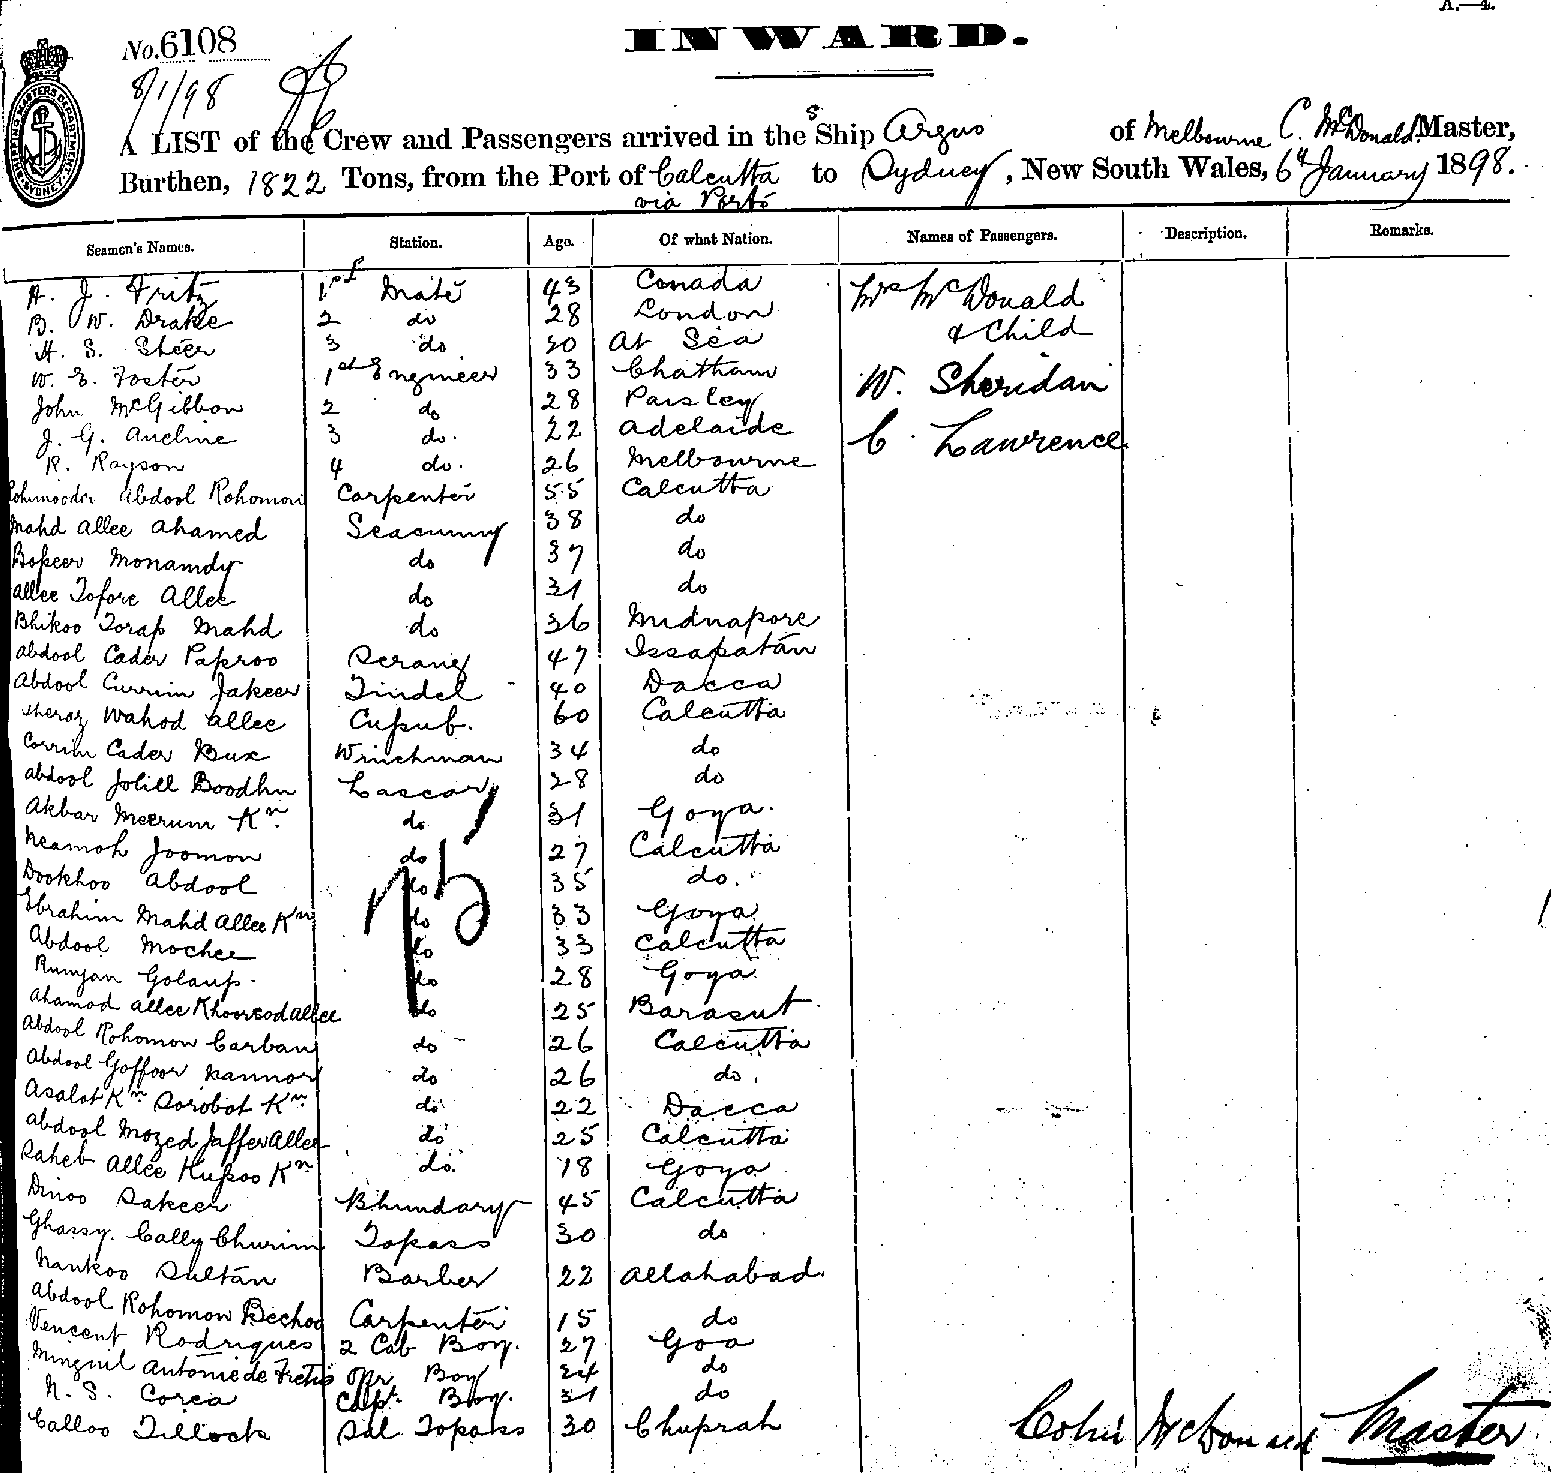 A.—4.
No. 6108
INWARD.
8/1/98
A LIST of the Crew and Passengers arrived in the S Ship Argus of Melbourne C. McDonald Master,
Burthen, 1822 Tons, from the Port of Calcutta to Sydney, New South Wales, 6th January 1898.
via Ports
Seamen's Names. Station. Age. Of what Nation. Names of Passengers. Description. Remarks.
A. J. Fritz 1st Mate 43 Canada Mrs McDonald
B. W. Drake 2 do 28 London & Child
H. S. Steer 3 do 30 At Sea
W. E. Foster 1st Engineer 33 Chatham W. Sheridan
John McGibbon 2 do 28 Paisley
J. G. Aucline 3 do. 22 Adelaide C. Lawrence
R. Rayson 4 do. 26 Melbourne
Abdool Rohomon Carpenter 55 Calcutta
Mahd Allee Ahamed Seacunny 38 do
Bokeer Monamdy do 37 do
Allee Tofore Allee do 31 do
Bhikoo Torap Mahd do 36 Midnapore
Abdool Cader Paproo Serang 47 Issapatan
Abdool Currim Jakeer Tindel 40 Dacca
Sheraz Wahod Allee Cupsub. 60 Calcutta
Corrim Cader Bux Winchman 34 do
Abdool Jolill Boodhu Lascar 28 do
Akbar Meerum Kn do 31 Goya.
Neamoh Joomon do 27 Calcutta
Dookhoo Abdool do 35 do.
Ebrahim Mahd Allee Kn do 33 Goya
Abdool Mochee do 33 Calcutta
Rumjan Golaup. do 28 Goya
Ahamod Allee Khoorsod Allee do 25 Barasut
Abdool Rohomon Carban do 26 Calcutta
Abdool Goffoor Nannor do 26 do.
Asalot Kn Sorobot Kn do 22 Dacca
Abdool Mozed Jaffer Allee do 25 Calcutta
Saheb Allee Kupoo Kn do. 18 Goya
Dinoo Sakeer Bhundary 45 Calcutta
Ghassy. Cally Churim Topass 30 do
Nankoo Sultan Barber 22 Allahabad.
Abdool Rohomon Bechoo Carpenter 15 do
Vencent Rodrigues 2 Cab Boy. 27 Goa
Minguil Antonie de Fretis Offr Boy 24 do
N. S. Corea Capt. Boy. 31 do
Calloo Tillock Sal Topass 30 Chuprah
Colin McDonald Master